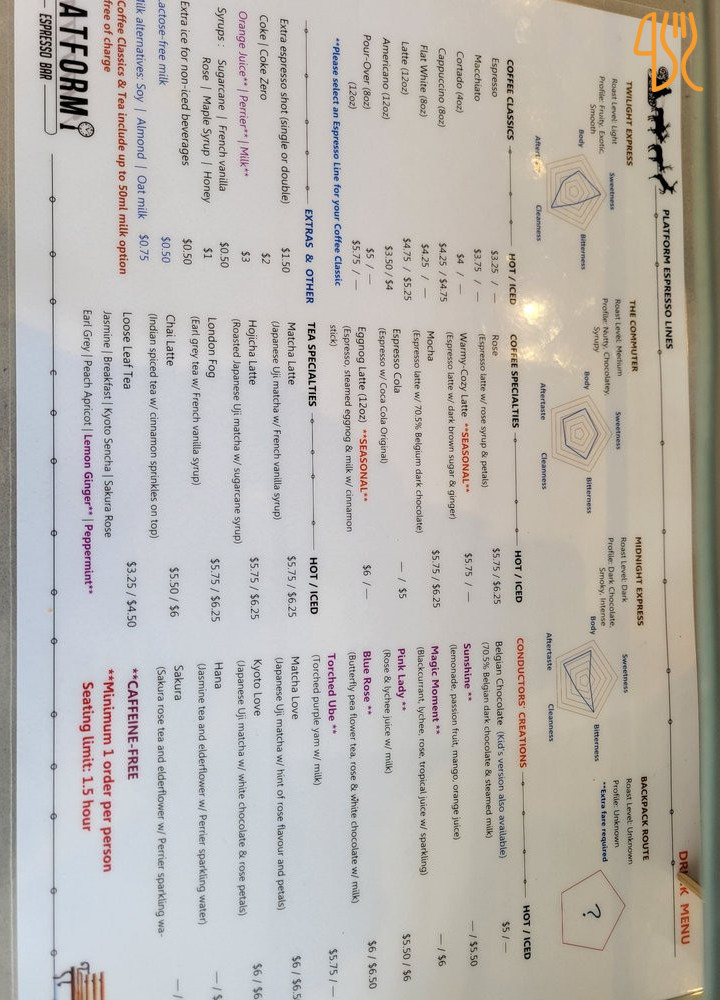 DRINK MENU
PLATFORM ESPRESSO LINES
TWILIGHT EXPRESS
Roast Level: Light
Profile: Fruity, Exotic,
Smooth
Sweetness
Bitterness
Cleanness
Body
THE COMMUTER
Roast Level: Medium
Profile: Nutty, Chocolatey,
Syrupy
Sweetness
Bitterness
Cleanness
Aftertaste
Body
MIDNIGHT EXPRESS
Roast Level: Dark
Profile: Dark Chocolate,
Smoky, Intense
Sweetness
Bitterness
Cleanness
Aftertaste
Body
BACKPACK ROUTE
Roast Level: Unknown
Profile: Unknown
**Extra fare required
?
COFFEE CLASSICS HOT / ICED
Espresso $3.25 / —
Macchiato $3.75 / —
Cortado (4oz) $4 / —
Cappuccino (8oz) $4.25 / $4.75
Flat White (8oz) $4.25 / —
Latte (12oz) $4.75 / $5.25
Americano (12oz) $3.50 / $4
Pour-Over (8oz) $5 / —
(12oz) $5.75 / —
**Please select an Espresso Line for your Coffee Classic
EXTRAS & OTHER
Extra espresso shot (single or double) $1.50
Coke | Coke Zero $2
Orange Juice** | Perrier** | Milk** $3
Syrups : Sugarcane | French vanilla $0.50
Rose | Maple Syrup | Honey $1
Extra ice for non-iced beverages $0.50
Lactose-free milk $0.50
Milk alternatives: Soy | Almond | Oat milk $0.75
Coffee Classics & Tea include up to 50ml milk option
free of charge
COFFEE SPECIALTIES HOT / ICED
Rose $5.75 / $6.25
(Espresso latte w/ rose syrup & petals)
Warmy-Cozy Latte **SEASONAL** $5.75 / —
(Espresso latte w/ dark brown sugar & ginger)
Mocha $5.75 / $6.25
(Espresso latte w/ 70.5% Belgium dark chocolate)
Espresso Cola — / $5
(Espresso w/ Coca Cola Original)
Eggnog Latte (12oz) **SEASONAL** $6 / —
(Espresso, steamed eggnog & milk w/ cinnamon
stick)
TEA SPECIALTIES HOT / ICED
Matcha Latte $5.75 / $6.25
(Japanese Uji matcha w/ French vanilla syrup)
Hojicha Latte $5.75 / $6.25
(Roasted Japanese Uji matcha w/ sugarcane syrup)
London Fog $5.75 / $6.25
(Earl grey tea w/ French vanilla syrup)
Chai Latte $5.50 / $6
(Indian spiced tea w/ cinnamon sprinkles on top)
Loose Leaf Tea $3.25 / $4.50
Jasmine | Breakfast | Kyoto Sencha | Sakura Rose
Earl Grey | Peach Apricot | Lemon Ginger** | Peppermint**
CONDUCTORS' CREATIONS HOT / ICED
Belgian Chocolate (Kid's version also available) $5 / —
(70.5% Belgian dark chocolate & steamed milk)
Sunshine ** — / $5.50
(lemonade, passion fruit, mango, orange juice)
Magic Moment ** — / $6
(Blackcurrant, lychee, rose, tropical juice w/ sparkling)
Pink Lady ** $5.50 / $6
(Rose & lychee juice w/ milk)
Blue Rose ** $6 / $6.50
(Butterfly pea flower tea, rose & white chocolate w/ milk)
Torched Ube ** $5.75 / —
(Torched purple yam w/ milk)
Matcha Love $6 / $6.5
(Japanese Uji matcha w/ hint of rose flavour and petals)
Kyoto Love $6 / $6
(Japanese Uji matcha w/ white chocolate & rose petals)
Hana — / $
(Jasmine tea and elderflower w/ Perrier sparkling water)
Sakura — /
(Sakura rose tea and elderflower w/ Perrier sparkling wa-
**CAFFEINE-FREE
**Minimum 1 order per person
Seating limit: 1.5 hour
ATFORM
ESPRESSO BAR